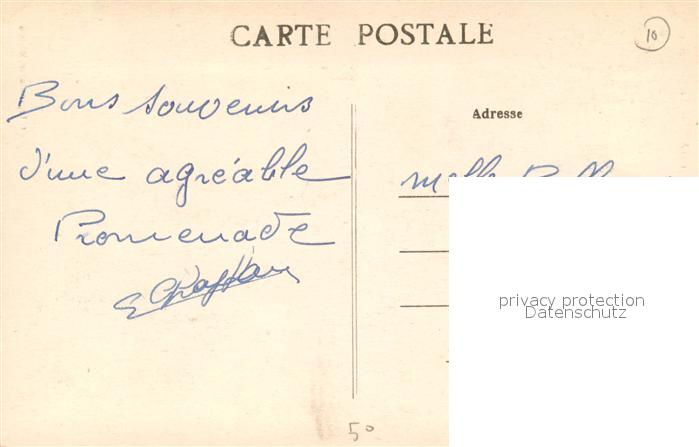 CARTE POSTALE
10
Bons souvenirs
Adresse
d'une agréable
Melle
Promenade
privacy protection
Datenschutz
50